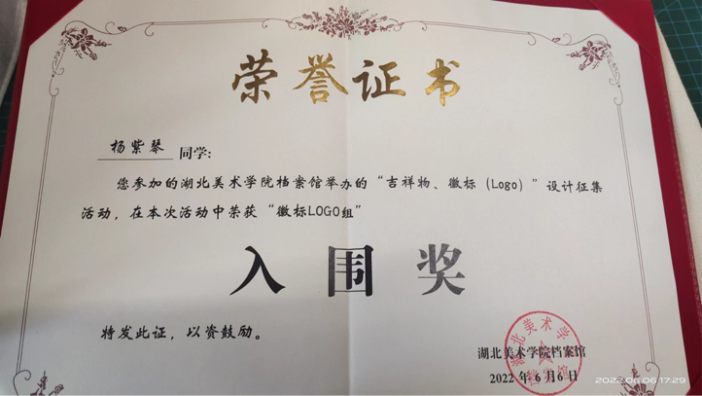 荣誉证书
杨紫琴 同学：
您参加的湖北美术学院档案馆举办的“吉祥物、徽标（Logo）”设计征集
活动，在本次活动中荣获“徽标LOGO组”
入围奖
特发此证，以资鼓励。
湖北美术学院档案馆
2022年6月6日
湖北美术学院
档案馆
2022/06/06 17:29